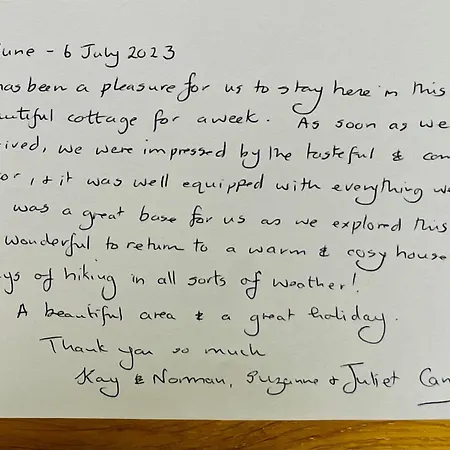 une - 6 July 2023
has been a pleasure for us to stay here in this
utiful cottage for a week. As soon as we
ived, we were impressed by the tasteful & con
or, & it was well equipped with everything we
was a great base for us as we explored this
wonderful to return to a warm & cosy house
ys of hiking in all sorts of weather!
A beautiful area & a great holiday.
Thank you so much
Kay & Norman, Suzanne & Juliet Can